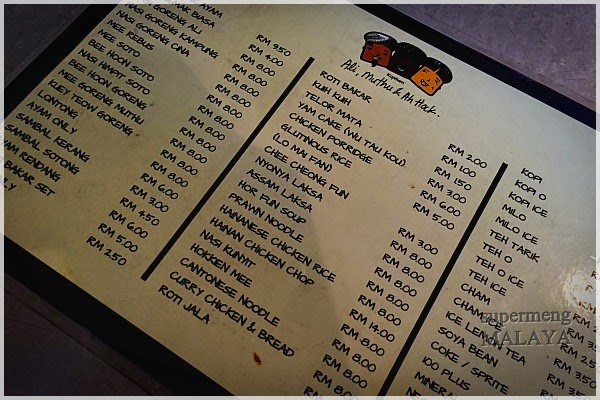 AYAM
BIASA
NASI GORENG ALI
NASI GORENG KAMPUNG
NASI GORENG CINA
MEE REBUS
MEE SOTO
BEE HOON SOTO
NASI IMPIT SOTO
BEE HOON GORENG
MEE GORENG MUTHU
KUEY TEOW GORENG
LONTONG
AYAM ONLY
SAMBAL KERANG
SAMBAL SOTONG
AYAM RENDANG
BAKAR SET
RM 9.50
RM 4.00
RM 8.00
RM 8.00
RM 8.00
RM 8.00
RM 8.00
RM 8.00
RM 8.00
RM 8.00
RM 3.00
RM 4.50
RM 6.00
RM 5.00
RM 2.50
Ali, Muthu & Ah Hock.
ROTI BAKAR
KUIH KUIH
TELOR MATA
YAM CAKE (WU TAU KOU)
CHICKEN PORRIDGE
GLUTINOUS RICE
(LO MAI FAN)
CHEE CHEONG FUN
NYONYA LAKSA
ASSAM LAKSA
HOR FUN SOUP
PRAWN NOODLE
HAINANESE CHICKEN RICE
HAINAN CHICKEN CHOP
NASI KUNYIT
HOKKEN MEE
CANTONESE NOODLE
CURRY CHICKEN & BREAD
ROTI JALA
RM 2.00
RM 1.00
RM 1.50
RM 3.00
RM 6.00
RM 5.00
RM 3.00
RM 8.00
RM 8.00
RM 8.00
RM 8.00
RM 8.00
RM 14.00
RM 8.00
RM 8.00
RM 8.00
RM 8.00
KOPI
KOPI O
KOPI ICE
MILO
MILO ICE
TEH TARIK
TEH O
TEH O ICE
TEH ICE
CHAM
CHAM ICE
ICE LEMON TEA
SOYA BEAN
COKE / SPRITE
100 PLUS
MINERAL
supermeng
MALAYA